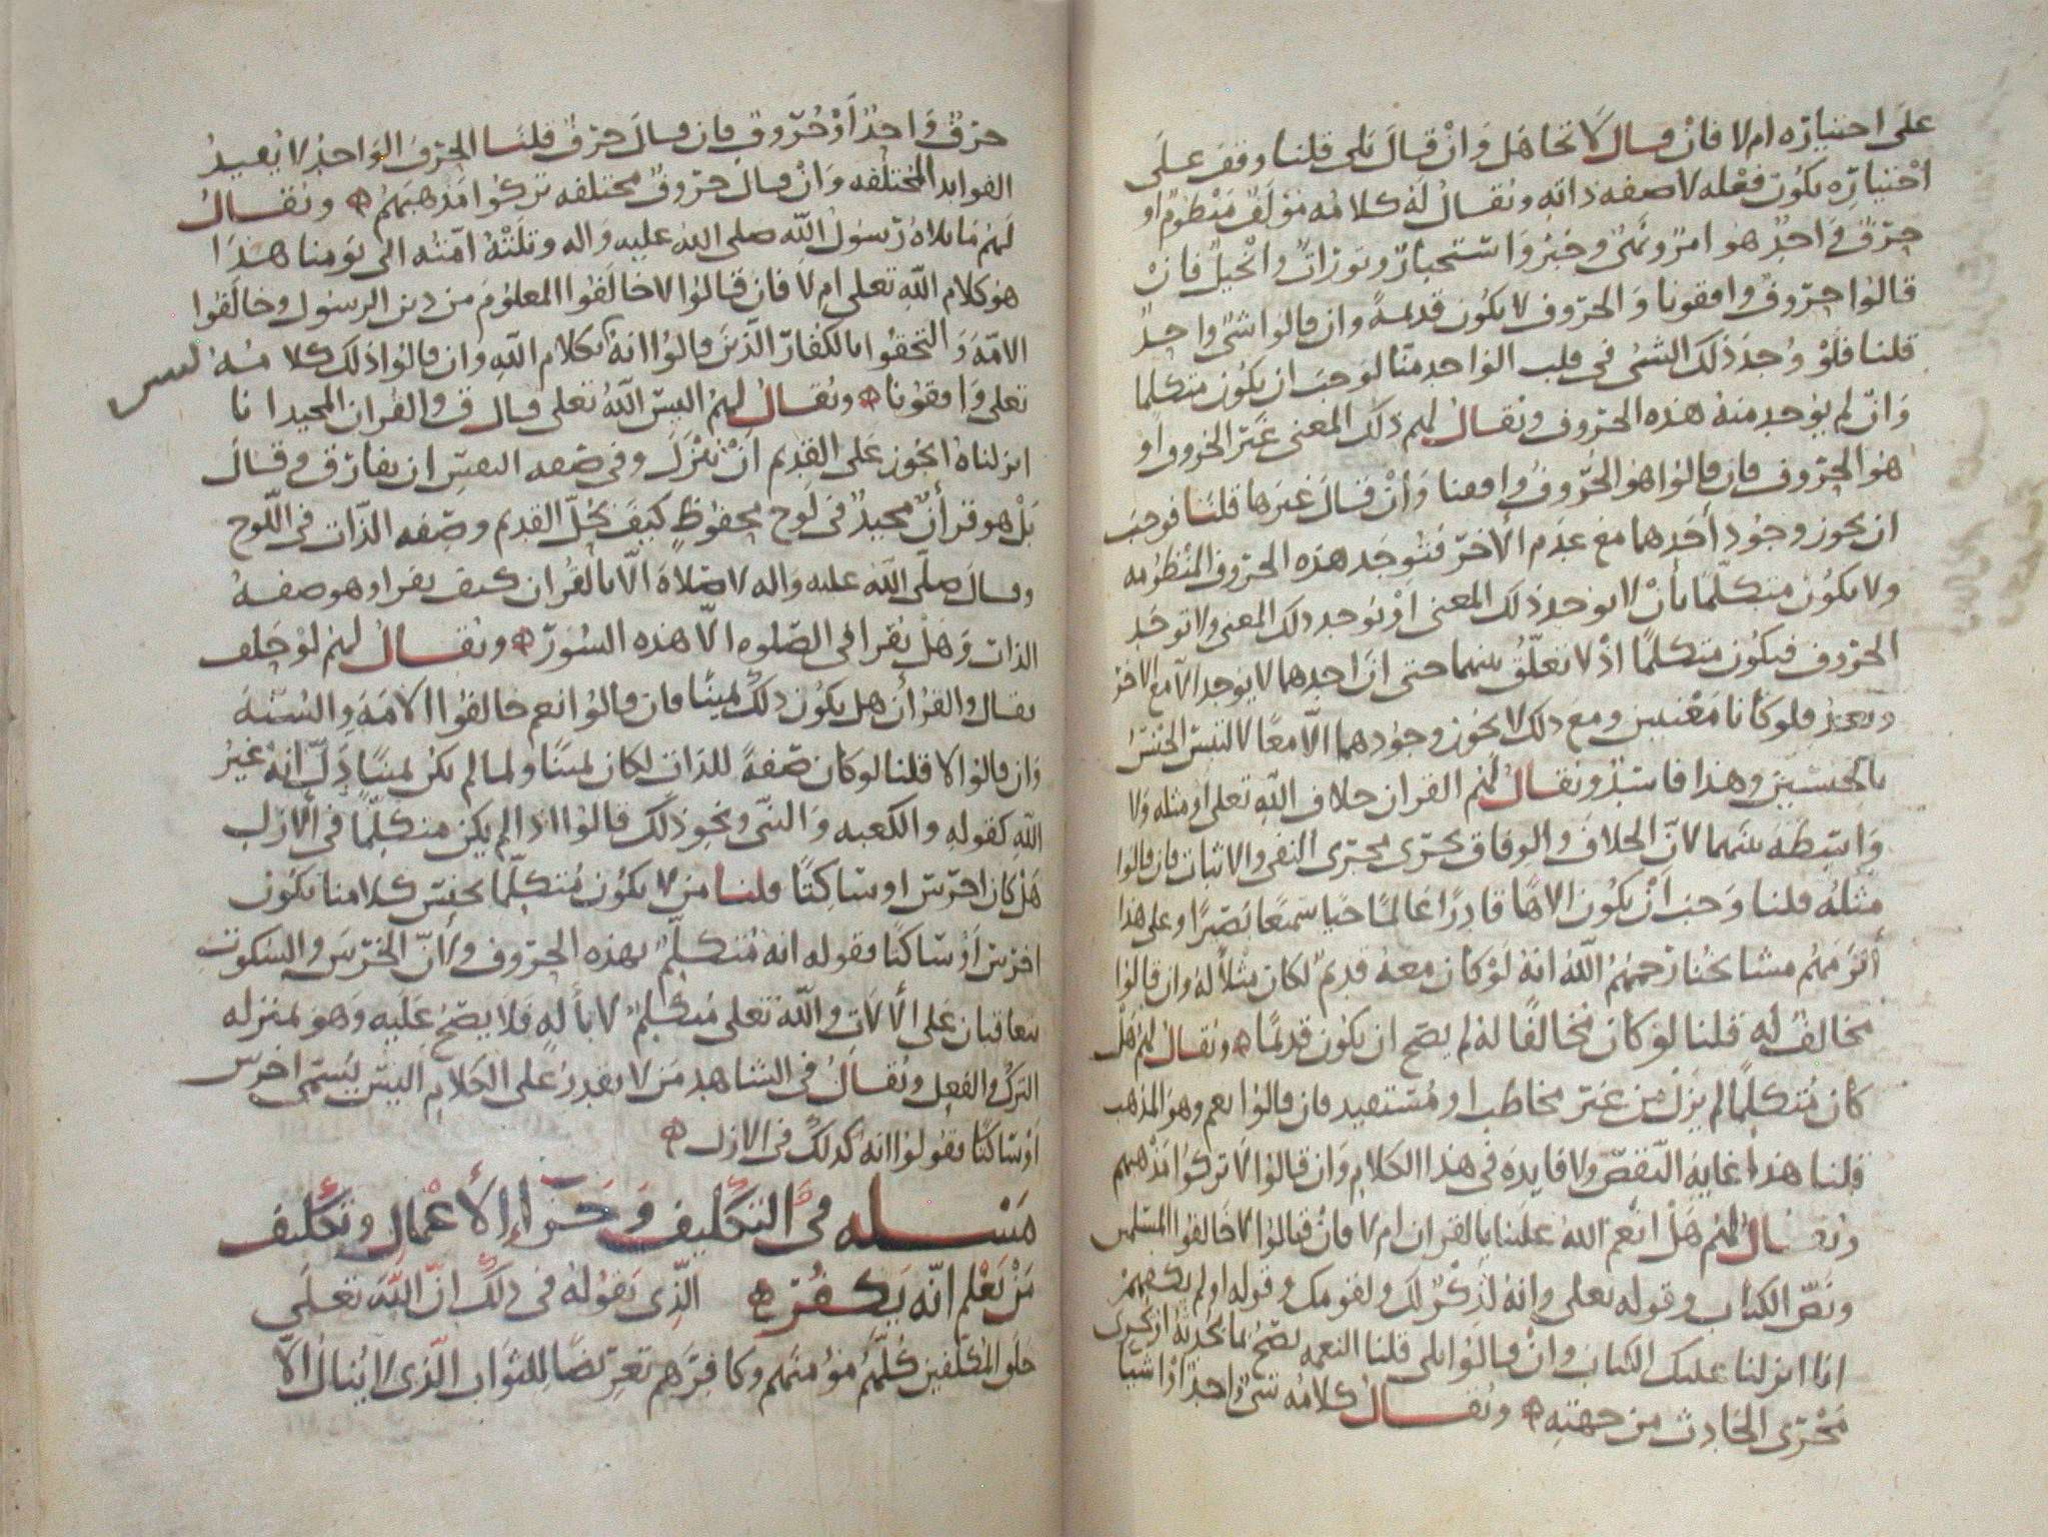 على اختياره ام لا فان قال لا تجاهل وان قال بلى قلنا وقف على
اختياره يكون فعله لا صفه ذاته ويقال له كلامه مؤلف منظوم او
حرف واحد هو امر ونهى وخبر واستخبار وتوراة وانجيل فان
قالوا حروف وافقونا والحروف لا يكون قديمة وان قالوا شى واحد
قلنا فلو وجد ذلك الشى فى قلب الواحد منا لوجب ان يكون متكلما
وان لم يوجد منه هذه الحروف ويقال لهم ذلك المعنى غير الحروف او
هو الحروف فان قالوا هو الحروف وافقنا وان قال غيرها قلنا فوجب
ان يجوز وجود أحدهما مع عدم الأخر فتوجد هذه الحروف المنظومه
ولا يكون متكلما بأن لا يوجد ذلك المعنى او يوجد ذلك المعنى ولا توجد
الحروف فيكون متكلما اذ لا تعلق بينهما حتى ان احدهما لا يوجد الا مع الاخر
فلو كانا معنيين ومع ذلك لا يجوز وجودهما الا معا لالتبس الجنس
بالجنسين وهذا فاسد ويقال لهم القران خلاف الله تعلى او مثله ولا
واسطه بينهما لان الخلاف والوفاق يجرى مجرى النفى والاثبات فان قالوا
مثله قلنا وجب ان يكون الاها قادرا عالما حيا سميعا بصيرا وعلى هذا
ألزمهم مشايخنا رحمهم الله انه لو كان معه قديم لكان مثلا له وان قالوا
مخالف له قلنا لو كان مخالفا له لم يصح ان يكون قديما ويقال لهم هل
كان متكلما لم يزل من غير مخاطب او مستفيد فان قالوا نعم وهو المذهب
قلنا هذا غاية النقص ولا فايده فى هذا الكلام وان قالوا لا تركوا مذهبهم
ويقال لهم هل انعم الله علينا بالقران ام لا فان قالوا لا خالفوا المسلمين
ونص الكتاب وقوله تعلى وانه لذكر لك ولقومك وقوله اولم يكفهم
انا انزلنا عليك الكتاب وان قالوا بلى قلنا النعمه تصح بما يحدثه او يجرى
مجرى الحادث من جهته ويقال كلامه شى واحد او اشيا
حرف واحد أو حروف فان قال حرف قلنا الحرف الواحد لا يفيد
الفوايد المختلفه وان قال حروف مختلفه تركوا مذهبهم ويقال
لهم ما تلاه رسول الله صلى الله عليه واله وتلته امته الى يومنا هذا
هو كلام الله تعلى ام لا فان قالوا لا خالفوا المعلوم من دين الرسول وخالفوا
الامه والتحقوا بالكفار الذين قالوا انه ليس بكلام الله وان قالوا ذلك كلامه
تعلى وافقونا ويقال لهم اليس الله تعلى قال ق والقران المجيد انا
انزلناه ايجوز على القديم ان ينزل وفى صفه النفس ان يفارق وقال
بل هو قرآن مجيد فى لوح محفوظ كيف يحل القديم وصفه الذات فى اللوح
وقال صلى الله عليه واله لا صلاة الا بالقران كيف يقرا وهو صفه
الذات وهل يقرا فى الصلوه الا هذه السور ويقال لهم لو حلف
فقال والقرأن هل يكون ذلك يمينا فان قالوا نعم خالفوا الامه والسنه
وان قالوا لا قلنا لو كان صفة للذات لكان يمينا ولما لم يكن يمينا دل انه غير
الله كقوله والكعبه والنبى ونحو ذلك قالوا اذا لم يكن متكلما فى الازل
هل كان اخرس او ساكتا قلنا من لا يكون متكلما بجنس كلامنا يكون
اخرس أو ساكتا فقوله انه متكلم بهذه الحروف ولأن الخرس والسكوت
يتعاقبان على الألات والله تعلى متكلم لا بألة فلا يصح عليه وهو بمنزله
الترك والفعل ويقال فى الشاهد من لا يقدر على الكلام اليس يسمى اخرس
او ساكتا فقولوا انه كذلك فى الازل
مسله فى التكليف وجزاء الأعمال وتكليف
من يعلم انه يكفر الذى نقوله فى ذلك ان الله تعلى
خلق المكلفين كلهم مؤمنهم وكافرهم تعريضا للثواب الذى لا ينال الا